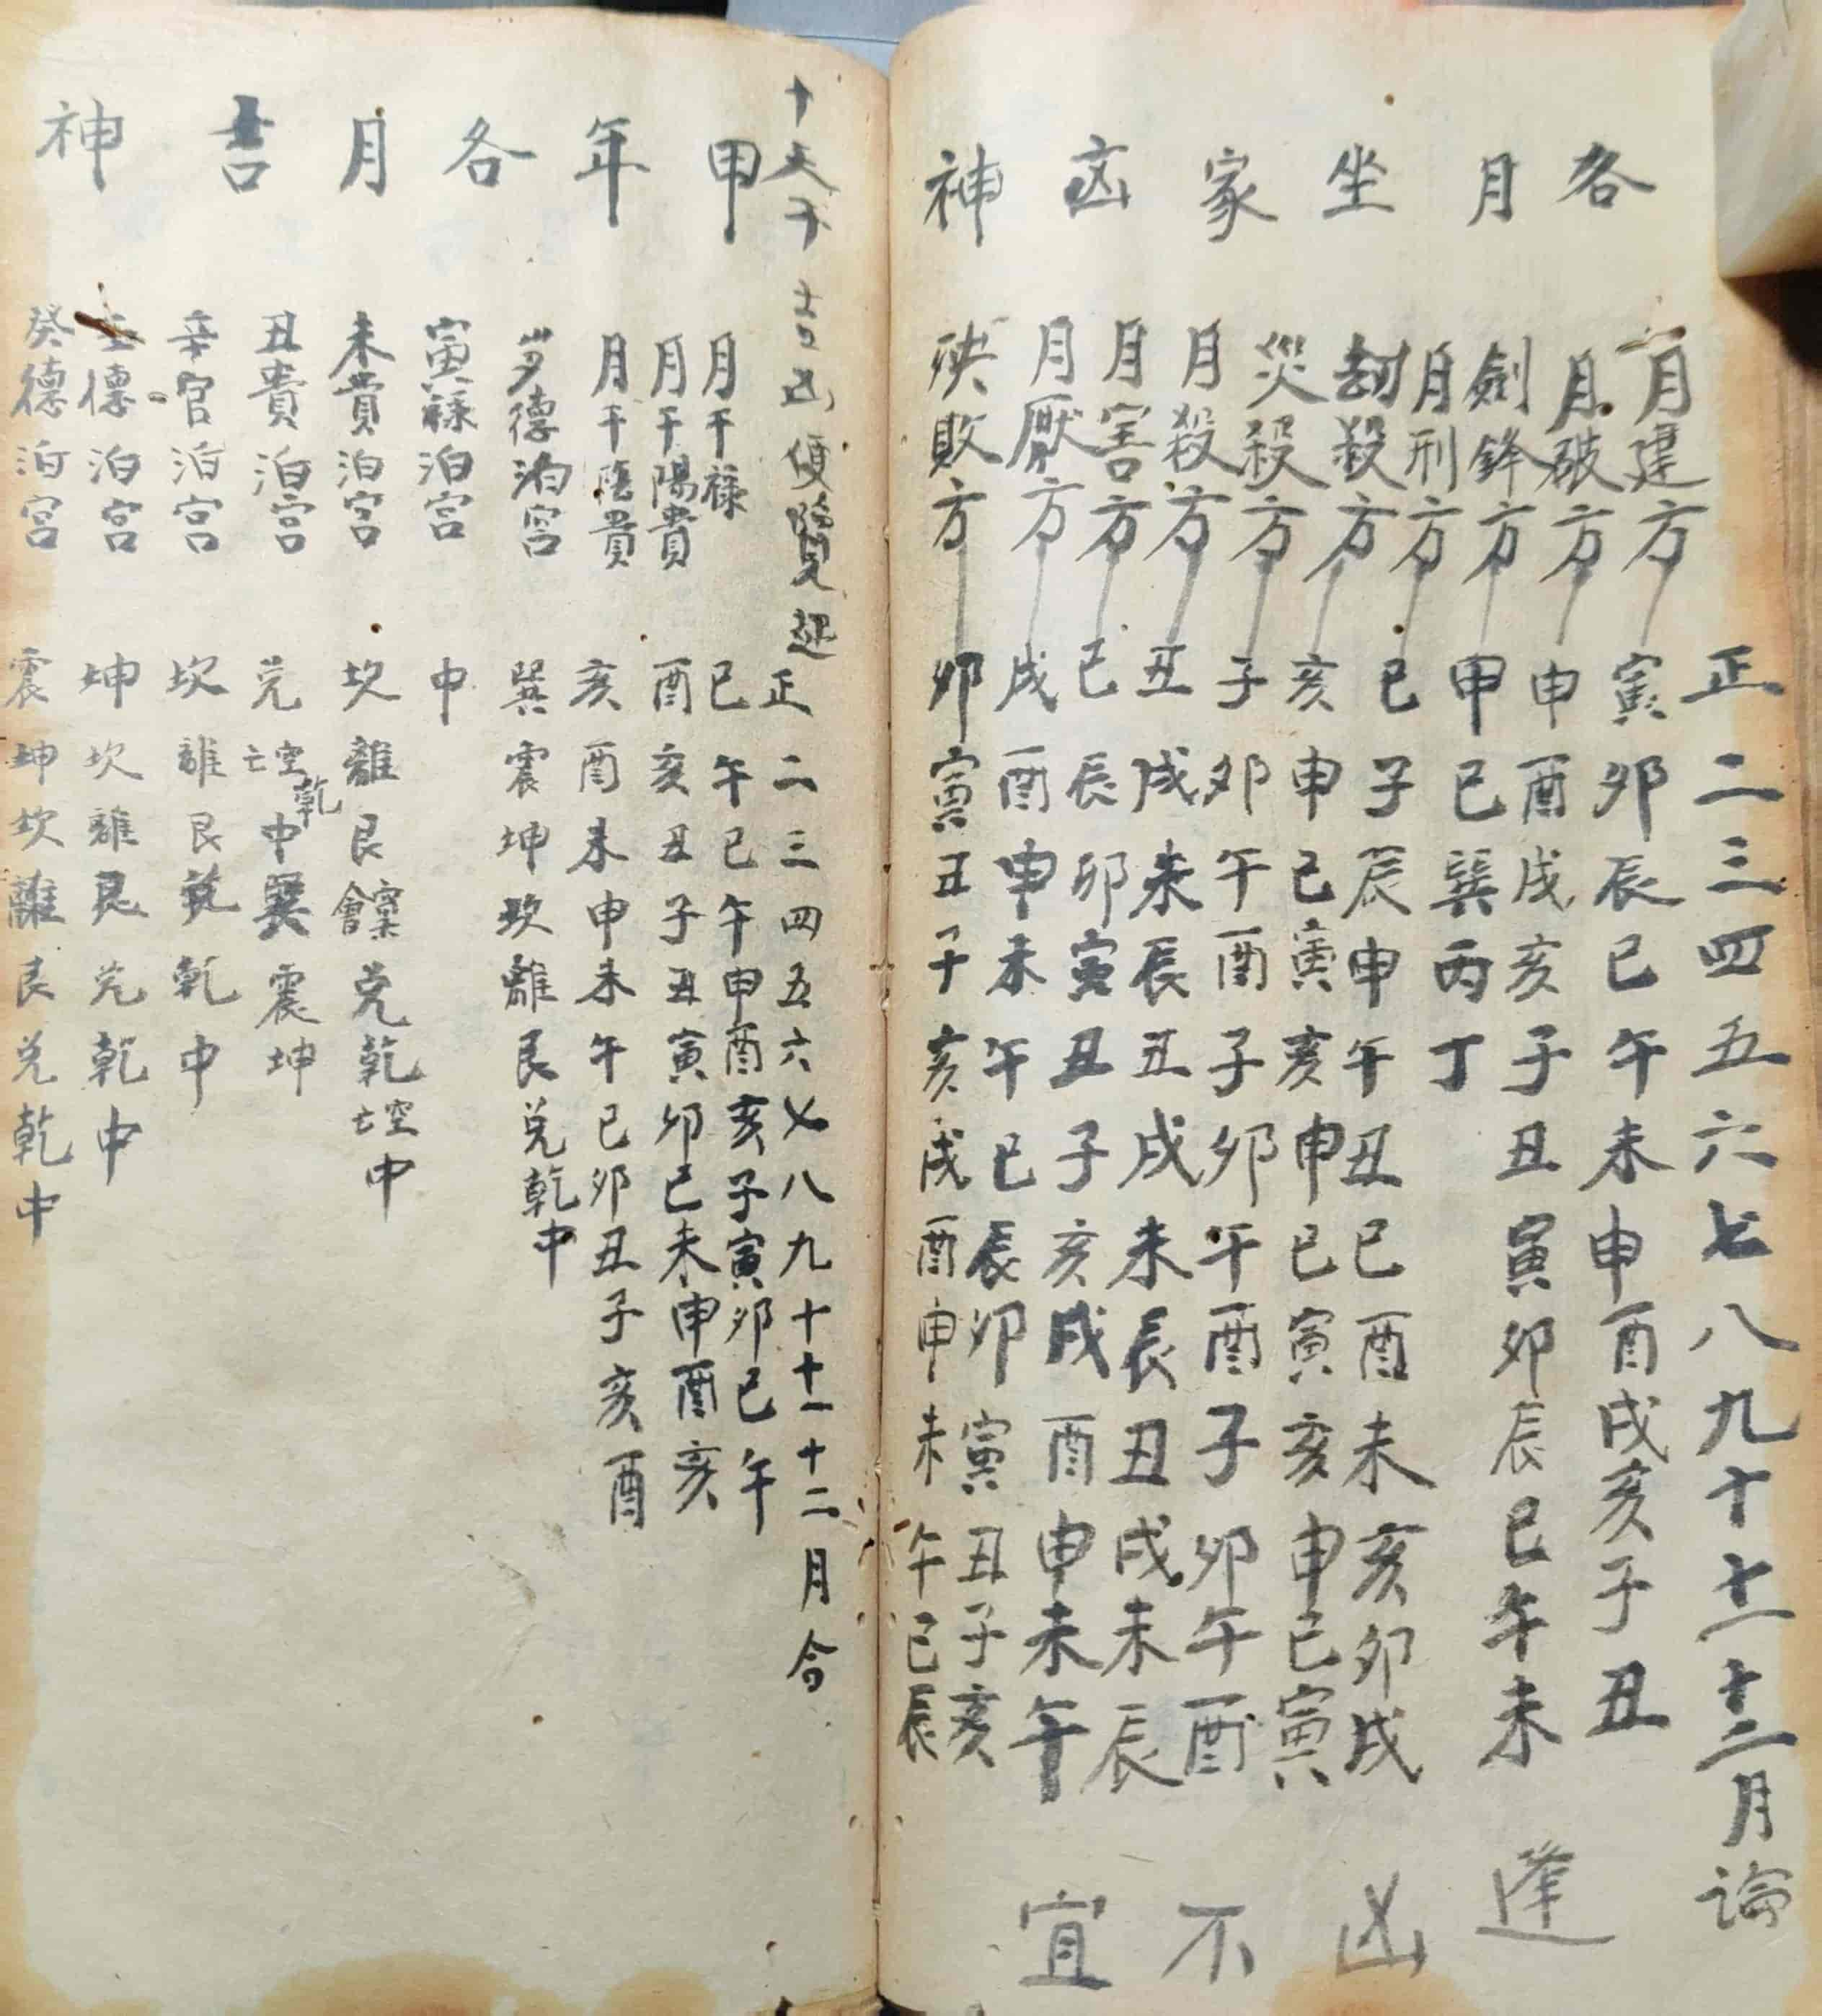 各月坐家凶神
正二三四五六七八九十十一十二月論
月建方 寅卯辰巳午未申酉戌亥子丑
月破方 申酉戌亥子丑寅卯辰巳午未
劍鋒方 甲巳巽丙丁
月刑方 巳子辰申午丑巳酉未亥卯戌
劫殺方 亥申巳寅亥申巳寅亥申巳寅
災殺方 子卯午酉子卯午酉子卯午酉
月殺方 丑戌未辰丑戌未辰丑戌未辰
月害方 巳辰卯寅丑子亥戌酉申未午
月厭方 戌酉申未午巳辰卯寅丑子亥
殃敗方 卯寅丑子亥戌酉申未午巳辰
逢凶不宜
十天干吉凶便覽起 正二三四五六七八九十十一十二月合
甲年各月吉神
月干祿 巳午巳午申酉亥子寅卯巳午
月干陽貴 酉亥丑子丑寅卯巳未申酉亥
月干陰貴 亥酉未申未午巳卯丑子亥酉
歲德泊宮 巽震坤坎離艮兌乾中
寅祿泊宮 中
未貴泊宮 坎離艮兌乾亡空中
丑貴泊宮 兌亡空乾中巽震坤
辛官泊宮 坎離艮兌乾中
壬德泊宮 坤坎離艮兌乾中
癸德泊宮 震坤坎離艮兌乾中